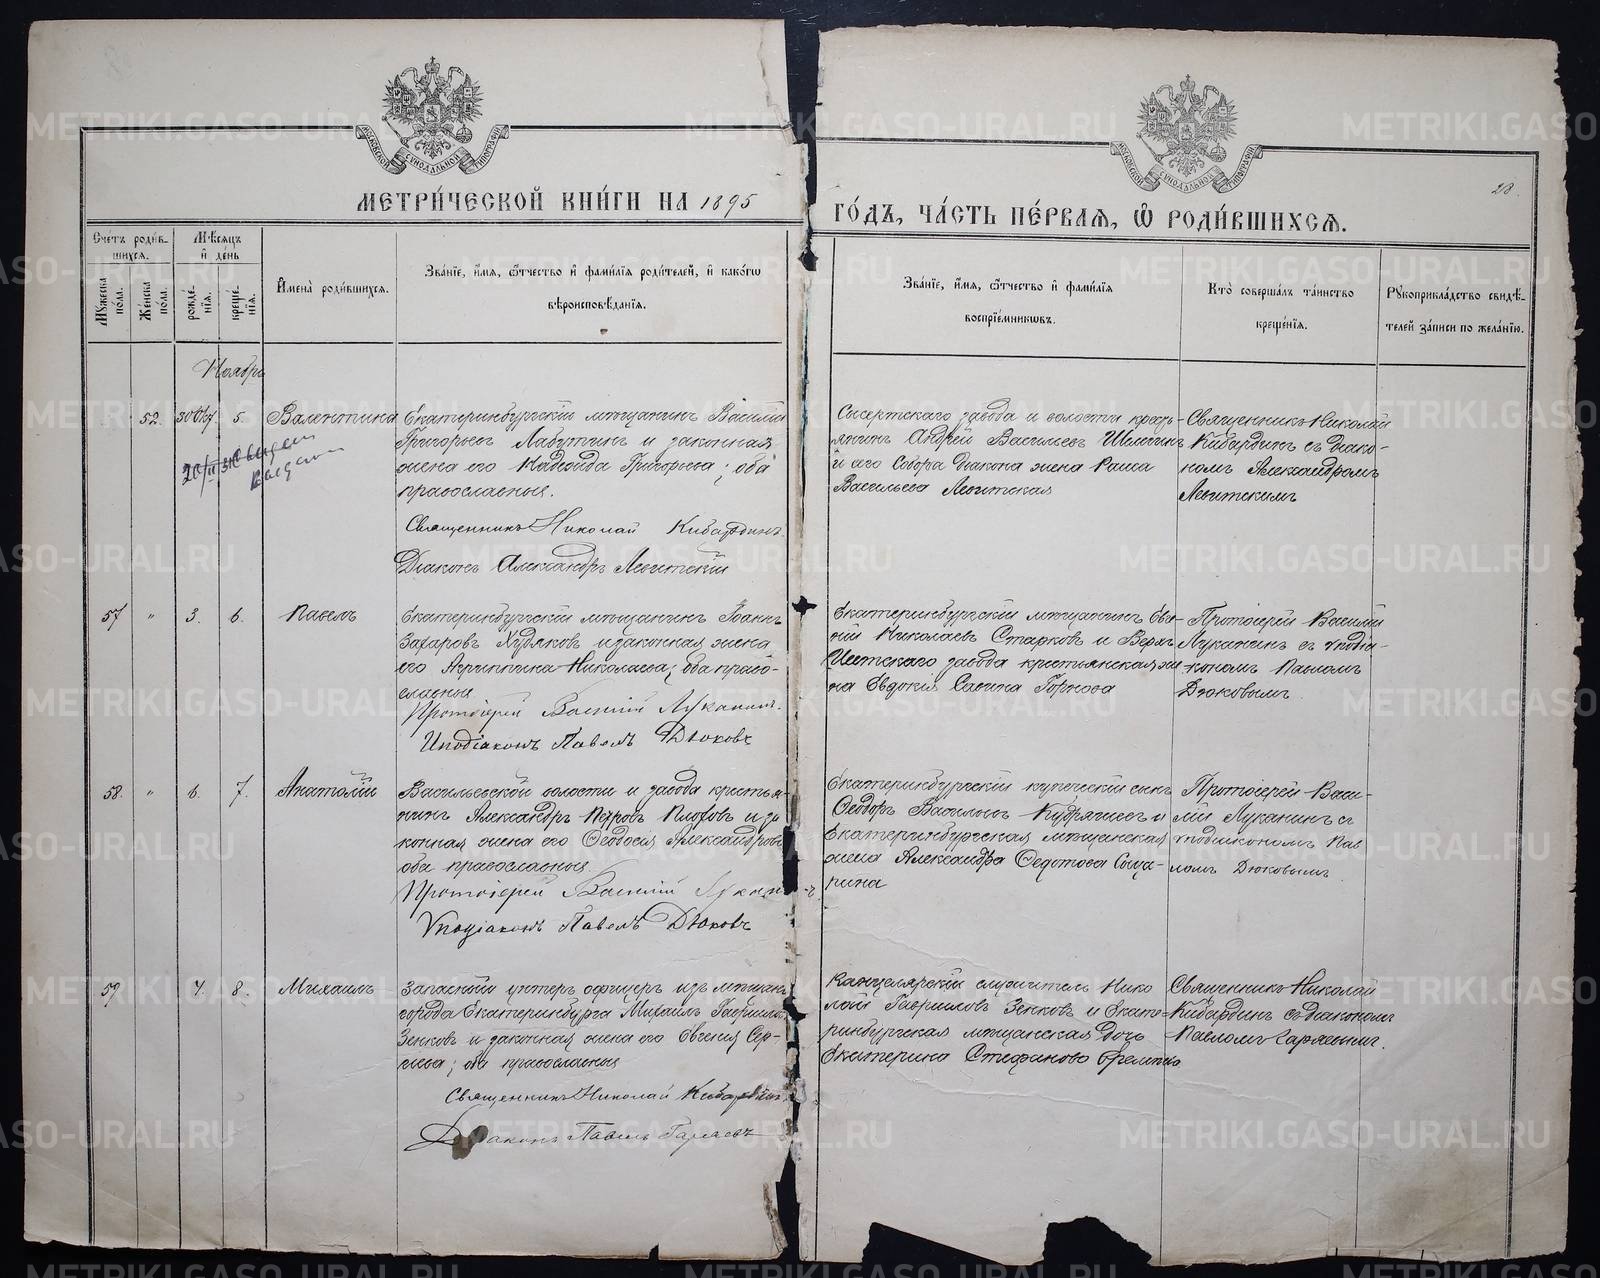 МЕТРИЧЕСКОЙ КНИГИ НА 1895
ГОДЪ, ЧАСТЬ ПЕРВАЯ, Ѿ РОДИВШИХСЯ.
28.
МОСКОВСКОЙ СУНОДАЛЬНОЙ ТИПОГРАФІИ
МОСКОВСКОЙ СУНОДАЛЬНОЙ ТИПОГРАФІИ
Счетъ родив-
шихся.
Мужеска пола.
Женска пола.
Мѣсяцъ
и день
рожде-
нія.
креще-
нія.
Имена родившихся.
Званіе, имя, ѿчество и фамилія родителей, и какогѡ
вѣроисповѣданія.
Званіе, имя, ѿчество и фамилія
воспріемникѡвъ.
Кто совершалъ таинство
крещенія.
Рукоприкладство свидѣ-
телей записи по желанію.
Ноябрь
52. 5. Валентина
Екатеринбургскій мѣщанинъ Василій
Григорьевъ Лабутинъ и законная
жена его Надежда Григорьева; оба
православные.
Священникъ Николай Кибардинъ.
Діаконъ Александръ Левитскій
Сысертскаго завода и волости кресть-
янинъ Андрей Васильевъ
и его Собора Діакона жена Раиса
Васильева Левитская
Священникъ Николай
Кибардинъ съ діако-
номъ Александромъ
Левитскимъ
57 " 3. 6. Павелъ
Екатеринбургскій мѣщанинъ Іоаннъ
Захаровъ Худяковъ и законная жена
его Агрипина Николаева; оба право-
славные
Протоіерей Василій Луканинъ.
Иподіаконъ Павелъ Дюковъ
Екатеринбургскій мѣщанинъ Евге-
ній Николаевъ Старковъ и Верхъ
Исетскаго завода крестьянская же-
на Евдокія Савина Горнова
Протоіерей Василій
Луканинъ съ иподіа-
кономъ Павломъ
Дюковымъ
58. " 6. 7. Анатолій
Васильевской волости и завода крестья-
нинъ Александръ Петровъ и за
конная жена его Ѳеодосія Александрова
оба православные.
Протоіерей Василій Луканинъ
Иподіаконъ Павелъ Дюковъ
Екатеринбургскій купеческій сынъ
Ѳеодоръ Васильевъ Кудрявцевъ и
Екатеринбургская мѣщанская
жена Александра Ѳедотова
Протоіерей Васи-
лій Луканинъ съ
иподіакономъ Пав
ломъ Дюковымъ
59 " 7. 8. Михаилъ
Запасный унтеръ офицеръ изъ мѣщанъ
города Екатеринбурга Михаилъ Гавриловъ
Зенковъ и законная жена его Евгенія Сер-
гіева; оба православные
Священникъ Николай Кибардинъ.
Діаконъ Павелъ Гаряевъ
Канцелярскій служитель Нико
лай Гавриловъ Зенковъ и Екате-
ринбургская мѣщанская дочь
Екатерина Стефанова
Священникъ Николай
Кибардинъ съ діакономъ
Павломъ Гаряевымъ.
METRIKI.GASO-URAL.RU